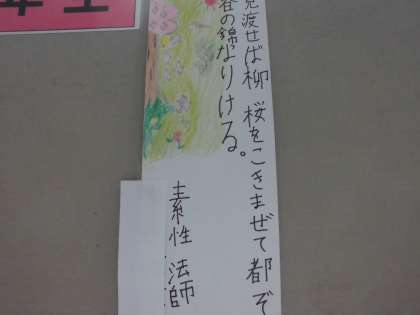 見渡せば柳桜をこきまぜて都ぞ
春の錦なりける。
素性法師
年生